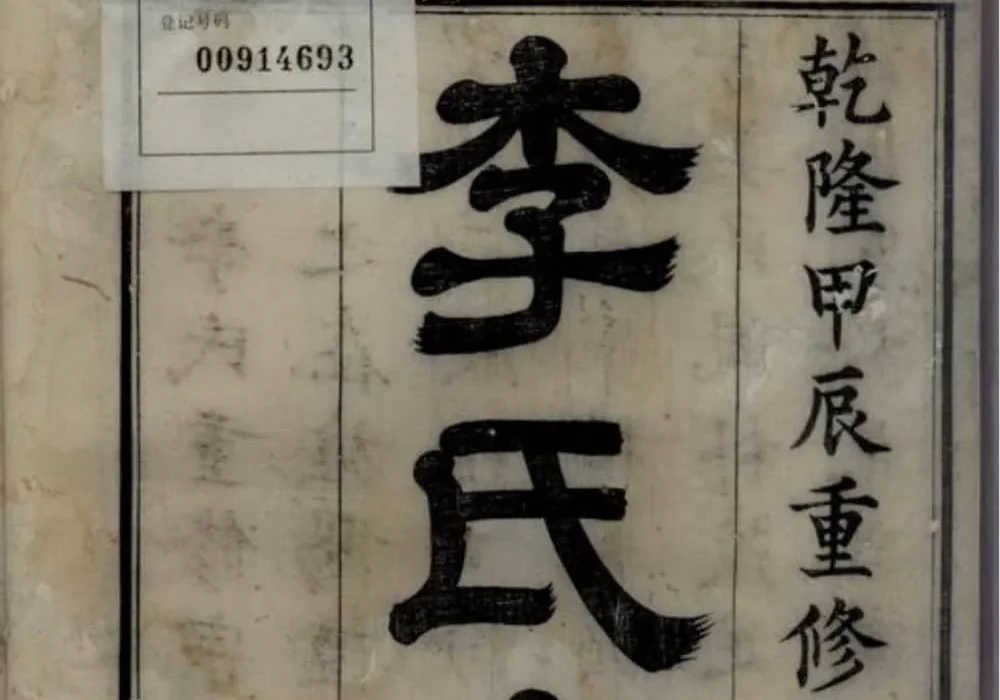 乾隆甲辰重修
李氏
登记号码
00914693